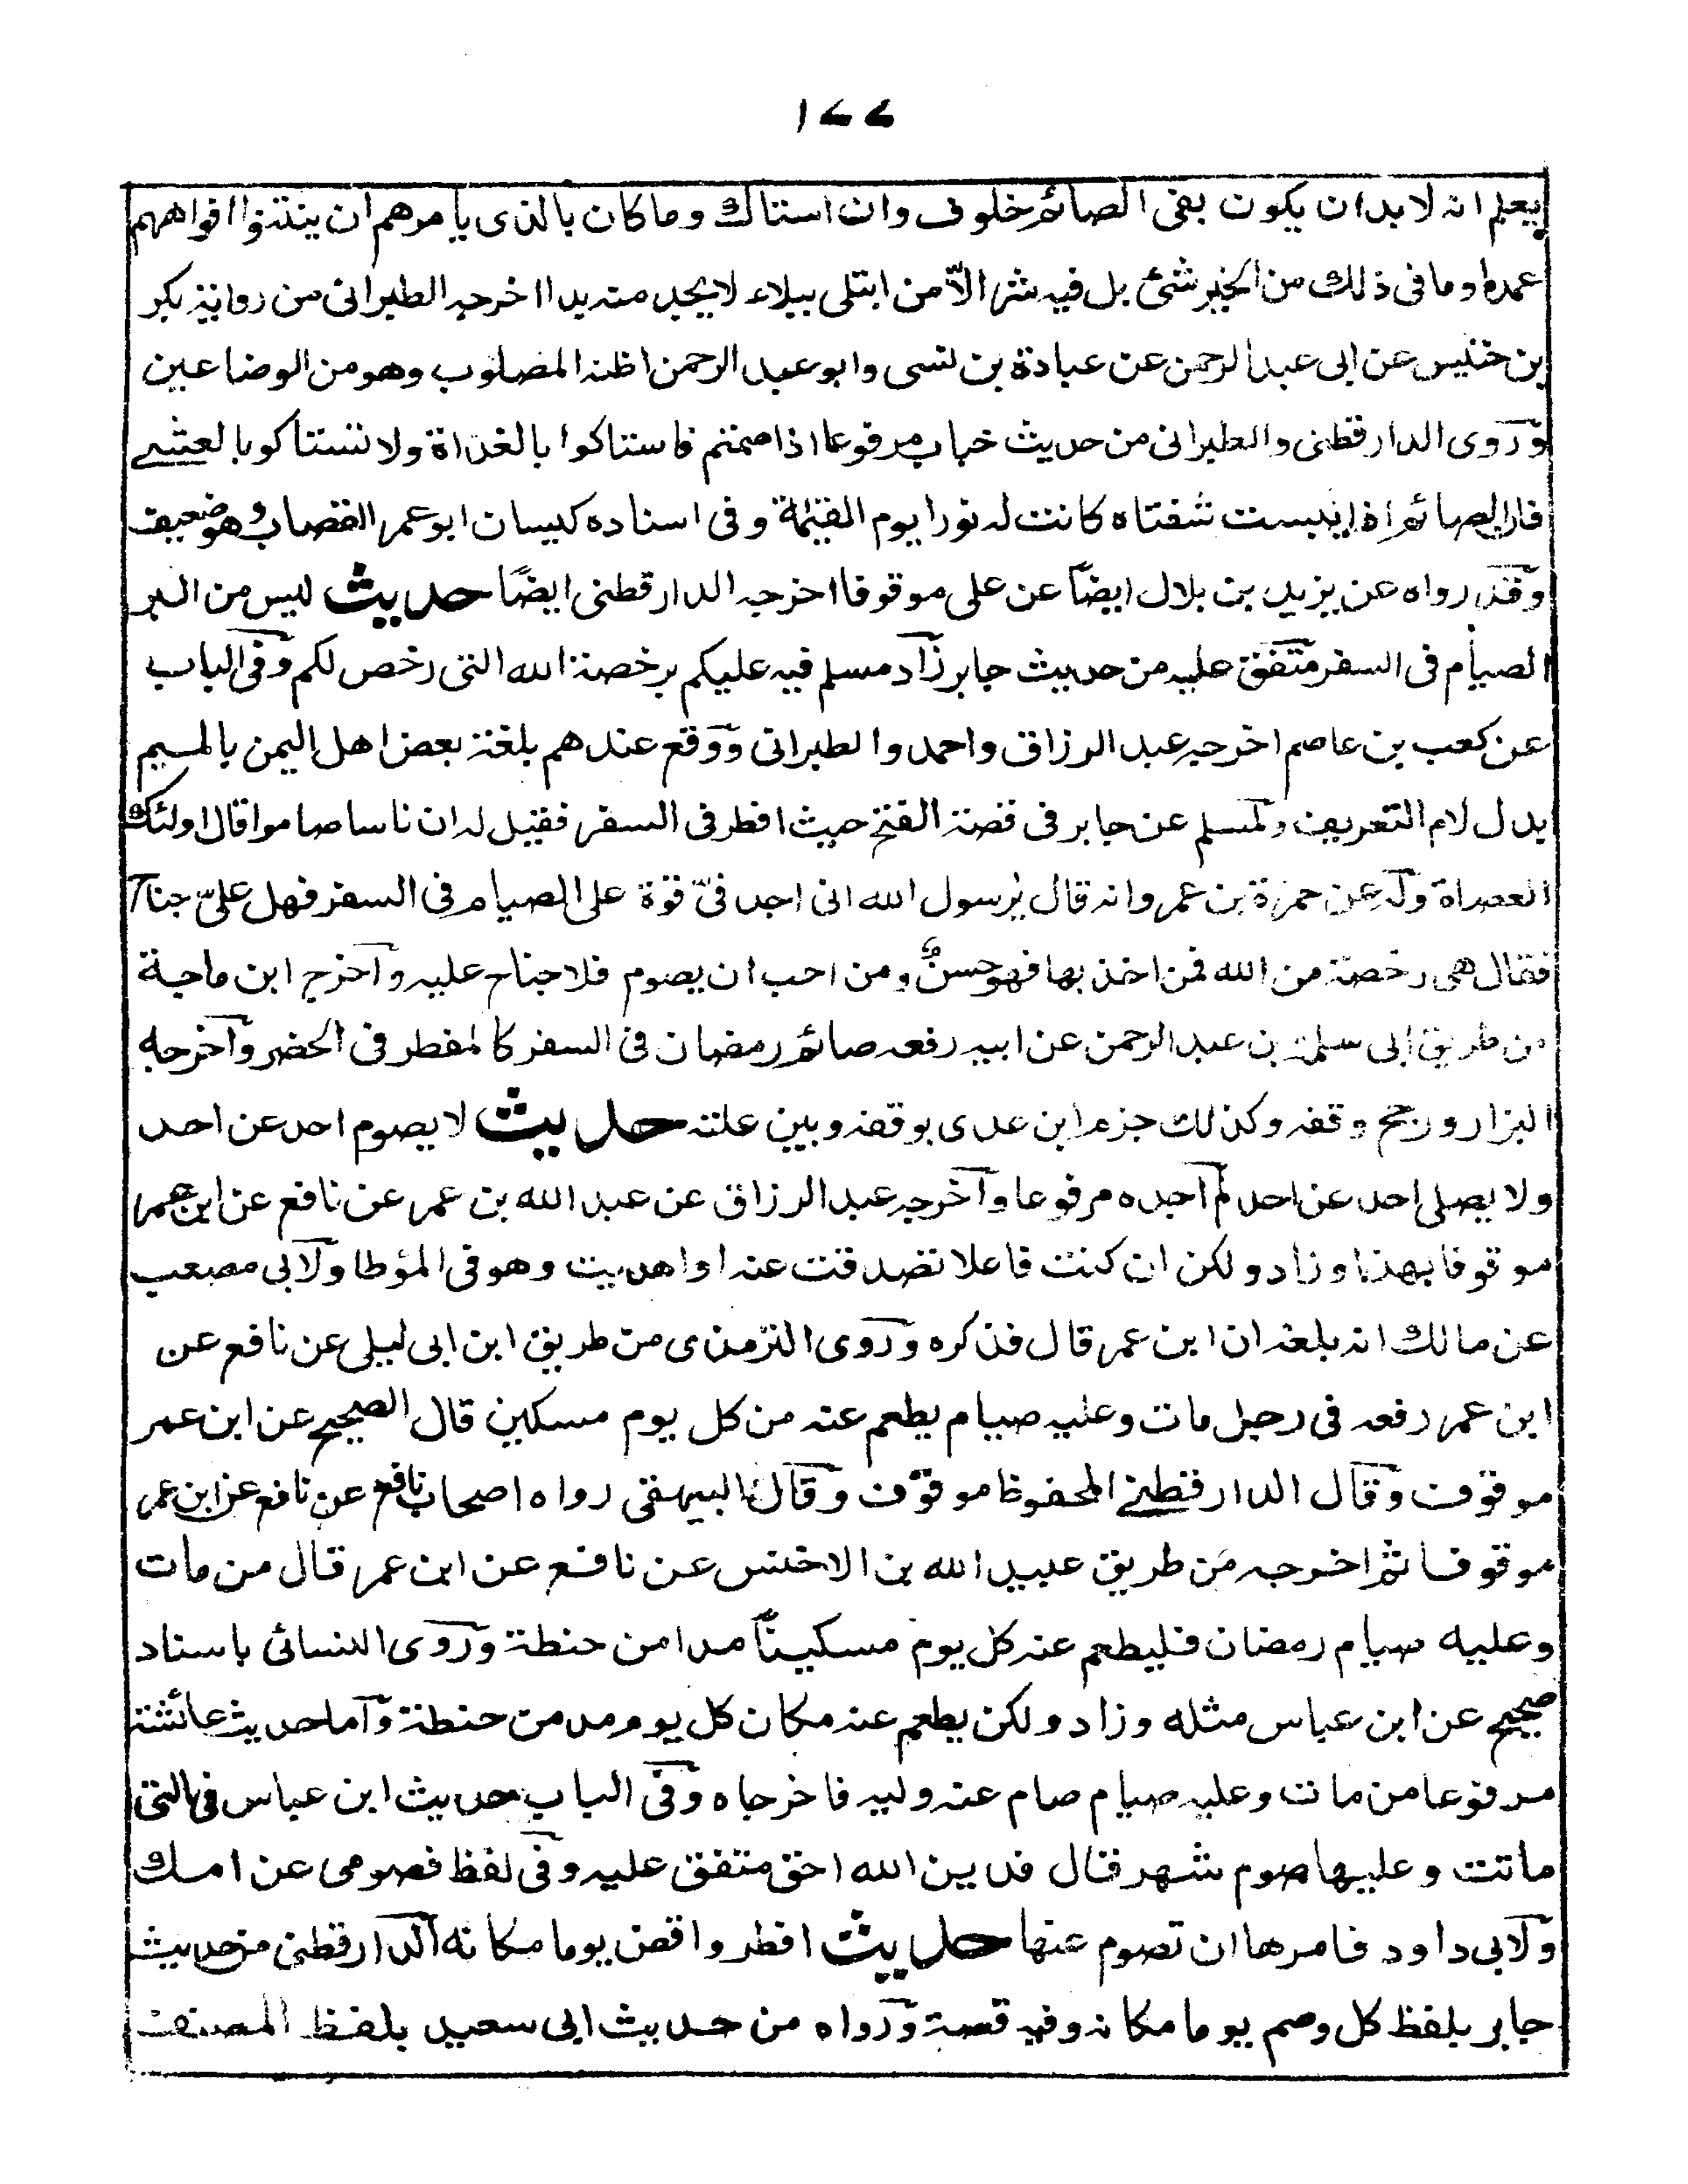 ١٧٧
يعلم انه لابد ان يكون بفى الصائم خلوف وان استاك وما كان بالذى يأمرهم ان ينتنوا افواههم
عمدا وما فى ذلك من الخير شئ بل فيه شر الّا من ابتلى ببلاء لا يجد منه بدا اخرجه الطبرانى من رواية بكر
بن خنيس عن ابى عبد الرحمن عن عبادة بن نسى وابو عبد الرحمن اظنه المصلوب وهو من الوضاعين
وروى الدارقطنى والطبرانى من حديث خباب مرفوعا اذا صمتم فاستاكوا بالغداة ولا تستاكو بالعشے
فان الصائم اذا يبست شفتاه كانت له نورا يوم القيٰمة وفى اسناده كيسان ابو عمر القصاب وهو ضعيف
وقد رواه عن يزيد بن بلال ايضاً عن على موقوفا اخرجه الدارقطنى ايضًا حديث ليس من البر
الصيام فى السفر متفق عليه من حديث جابر زاد مسلم فيه عليكم برخصة الله التى رخص لكم وفى الباب
عن كعب بن عاصم اخرجه عبد الرزاق واحمد والطبرانى ووقع عندهم بلغة بعض اهل اليمن بالميم
بدل لام التعريف ولمسلم عن جابر فى قصة الفتح حيث افطر فى السفر فقيل له ان ناسا صاموا قال اولئك
العصاة وله عن حمزة بن عمرو انه قال يٰرسول الله انى اجد فىّ قوة على الصيام فى السفر فهل علىّ جناح
فقال هى رخصة من الله فمن اخذ بها فهو حسنٌ ومن احب ان يصوم فلا جناح عليه واخرج ابن ماجة
من طريق ابى سلمة بن عبد الرحمن عن ابيه رفعه صائم رمضان فى السفر كالمفطر فى الحضر واخرجه
البزار ورجح وقفه وكذلك جزم ابن عدى بوقفه وبين علته حديث لا يصوم احد عن احد
ولا يصلى احد عن احد لم اجده مرفوعا واخرجه عبد الرزاق عن عبد الله بن عمر عن نافع عن ابن عمر
موقوفا بهذا وزاد ولكن ان كنت فاعلا تصدقت عنه او اهديت وهو فى المؤطا ولابى مصعب
عن مالك انه بلغه ان ابن عمر قال فذكره وروى الترمذى من طريق ابن ابى ليلى عن نافع عن
ابن عمر رفعه فى رجل مات وعليه صيام يطعم عنه من كل يوم مسكين قال الصحيح عن ابن عمر
موقوف وقال الدارقطنے المحفوظ موقوف وقال البيهقى رواه اصحاب نافع عن نافع عن ابن عمر
موقوفا ثم اخرجه من طريق عبيد الله بن الاخنس عن نافع عن ابن عمر قال من مات
وعليه صيام رمضان فليطعم عنه كل يوم مسكيناً مدا من حنطة وروى النسائى باسناد
صحيح عن ابن عباس مثله وزاد ولكن يطعم عنه مكان كل يوم مد من حنطة واما حديث عائشة
مرفوعا من مات وعليه صيام صام عنه وليه فاخرجاه وفى الباب حديث ابن عباس فى التى
ماتت وعليها صوم شهر قال فدين الله احق متفق عليه وفى لفظ فصومى عن امك
ولابى داود فامرها ان تصوم عنها حديث افطر واقض يوما مكانه الدارقطنى من حديث
جابر بلفظ كل وصم يوما مكانه وفيه قصة ورواه من حديث ابى سعيد بلفظ المصنف